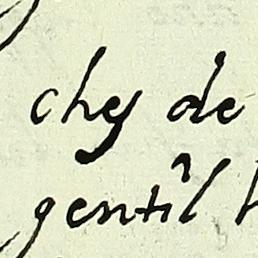 chez de
gentil